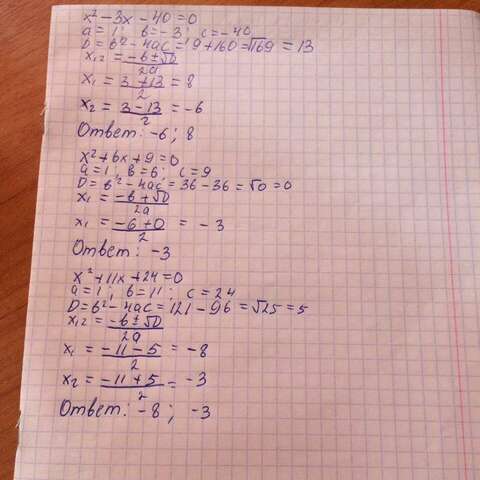 x² - 3x - 40 = 0
a = 1; b = -3; c = -40
D = b² - 4ac = 9 + 160 = √169 = 13
x₁,₂ = (-b ± √D)/2a
x₁ = (3 + 13)/2 = 8
x₂ = (3 - 13)/2 = -6
Ответ: -6; 8
x² + 6x + 9 = 0
a = 1, b = 6; c = 9
D = b² - 4ac = 36 - 36 = √0 = 0
x₁ = (-b + √D)/2a
x₁ = (-6 + 0)/2 = -3
Ответ: -3
x² + 11x + 24 = 0
a = 1; b = 11; c = 24
D = b² - 4ac = 121 - 96 = √25 = 5
x₁,₂ = (-b ± √D)/2a
x₁ = (-11 - 5)/2 = -8
x₂ = (-11 + 5)/2 = -3
Ответ: -8; -3